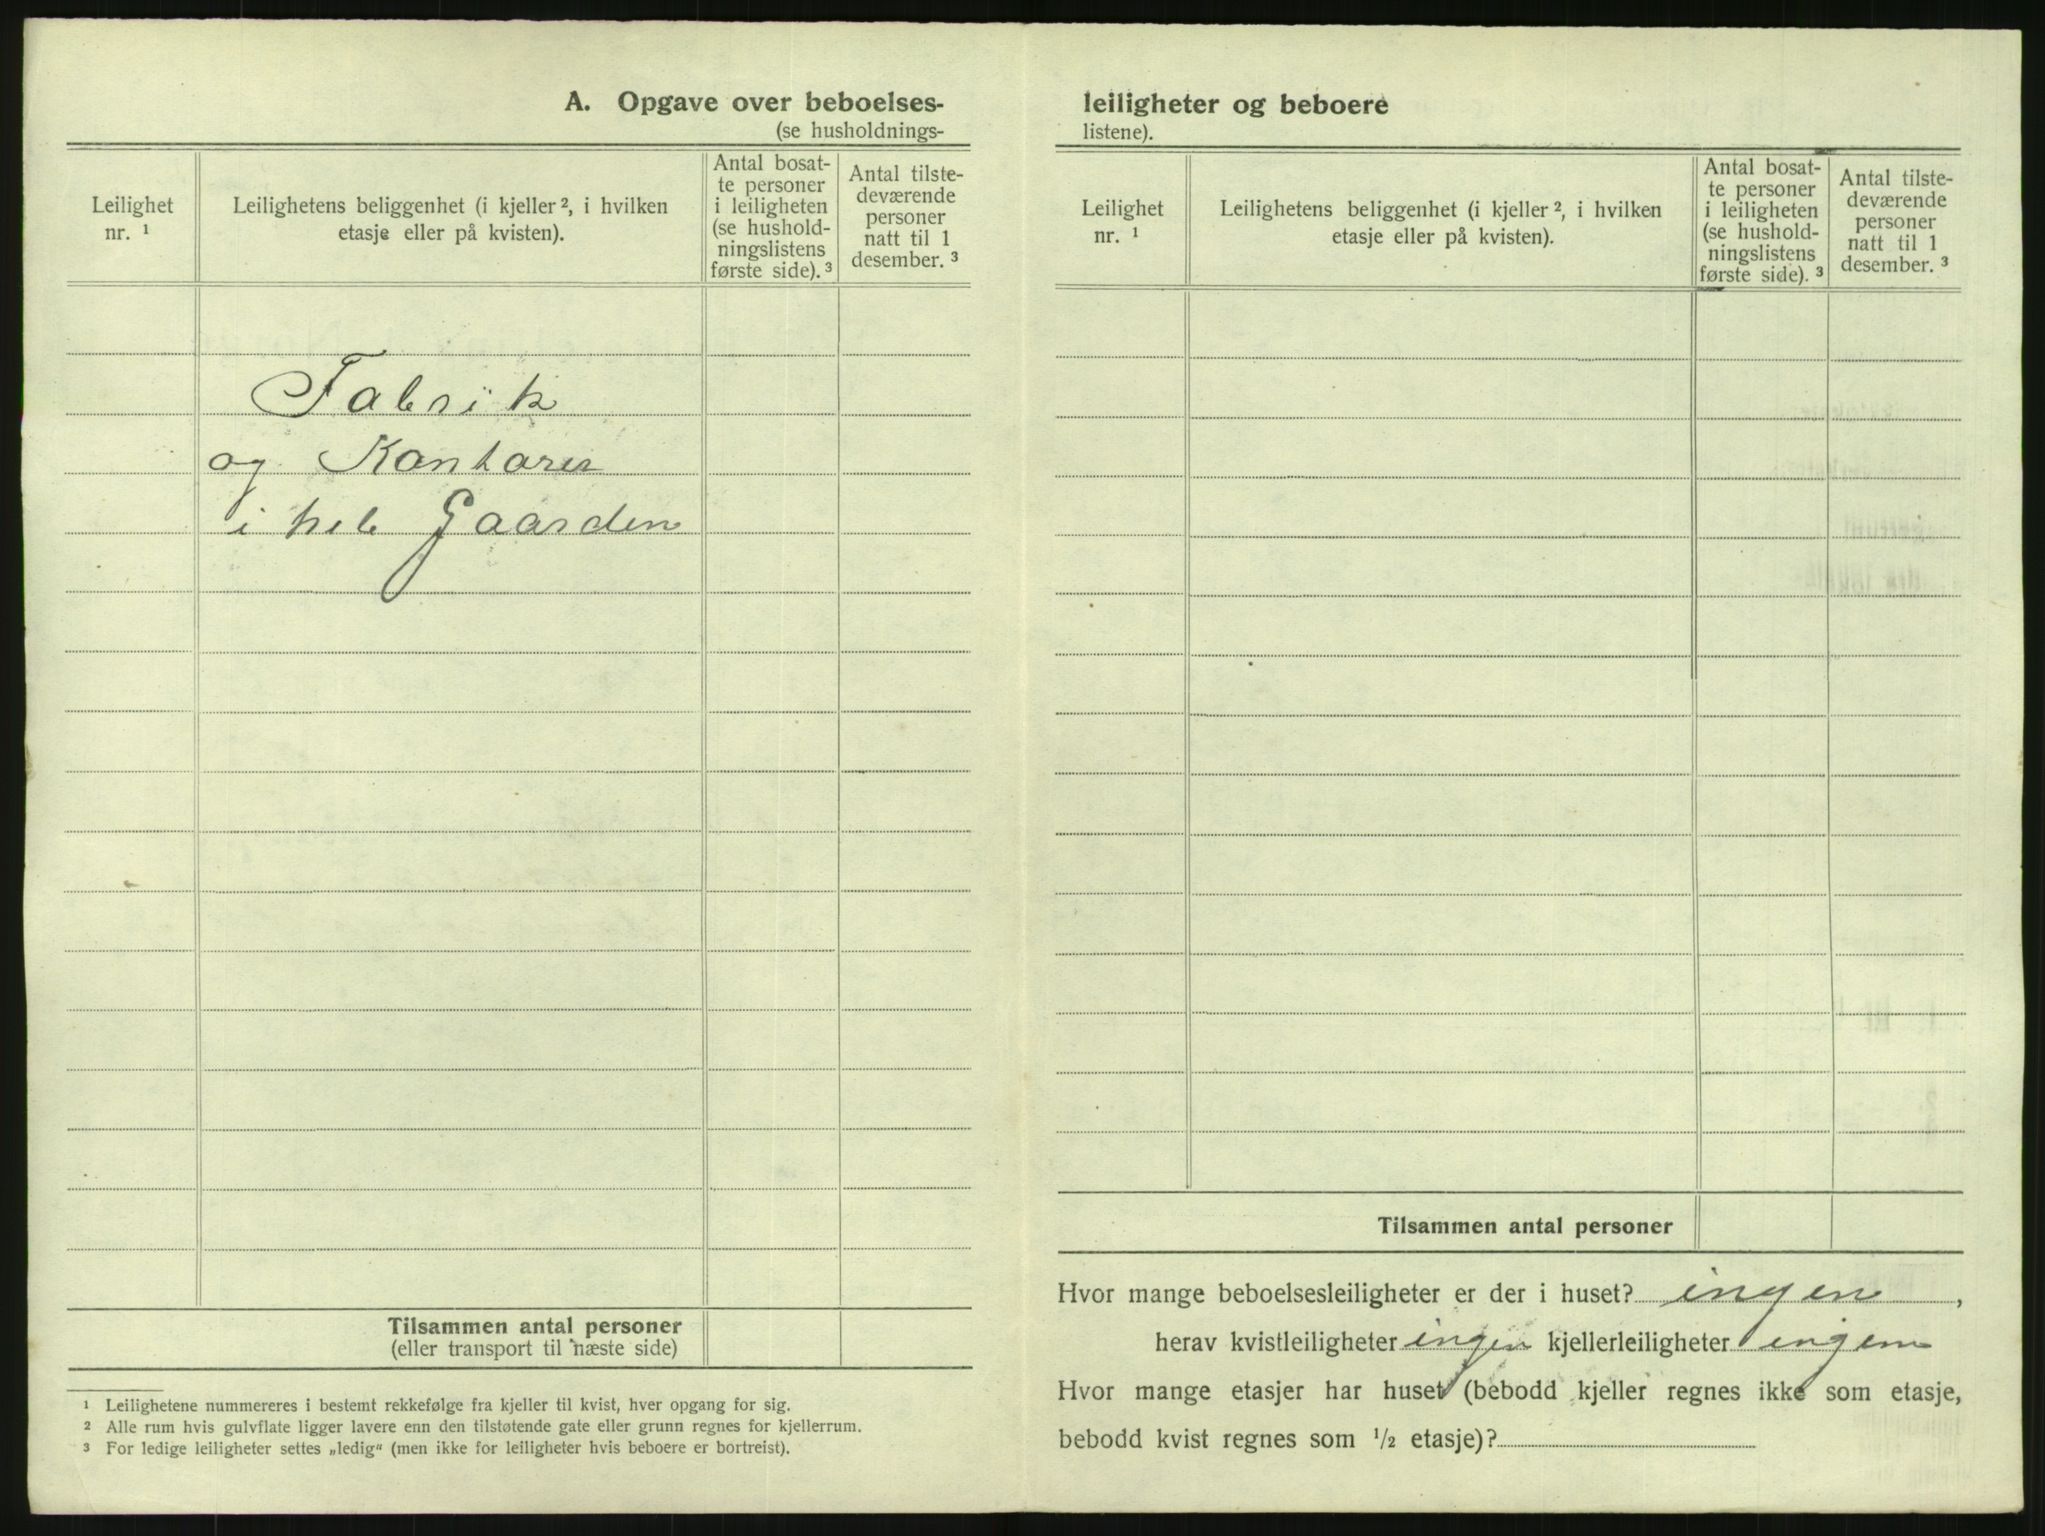 A. Opgave over beboelses-
(se husholdnings-
Leilighet
nr. ¹
Leilighetens beliggenhet (i kjeller ², i hvilken
etasje eller på kvisten).
Antal bosat-
te personer
i leiligheten
(se hushold-
ningslistens
første side). ³
Antal tilste-
deværende
personer
natt til 1
desember. ³
Fabrik
og Kontorer
i hele Gaarden
Tilsammen antal personer
(eller transport til næste side)
¹ Leilighetene nummereres i bestemt rekkefølge fra kjeller til kvist, hver opgang for sig.
² Alle rum hvis gulvflate ligger lavere enn den tilstøtende gate eller grunn regnes for kjellerrum.
³ For ledige leiligheter settes „ledig“ (men ikke for leiligheter hvis beboere er bortreist).
leiligheter og beboere
listene).
Leilighet
nr. ¹
Leilighetens beliggenhet (i kjeller ², i hvilken
etasje eller på kvisten).
Antal bosat-
te personer
i leiligheten
(se hushold-
ningslistens
første side). ³
Antal tilste-
deværende
personer
natt til 1
desember. ³
Tilsammen antal personer
Hvor mange beboelsesleiligheter er der i huset? ingen,
herav kvistleiligheter ingen kjellerleiligheter ingen
Hvor mange etasjer har huset (bebodd kjeller regnes ikke som etasje,
bebodd kvist regnes som ½ etasje)?